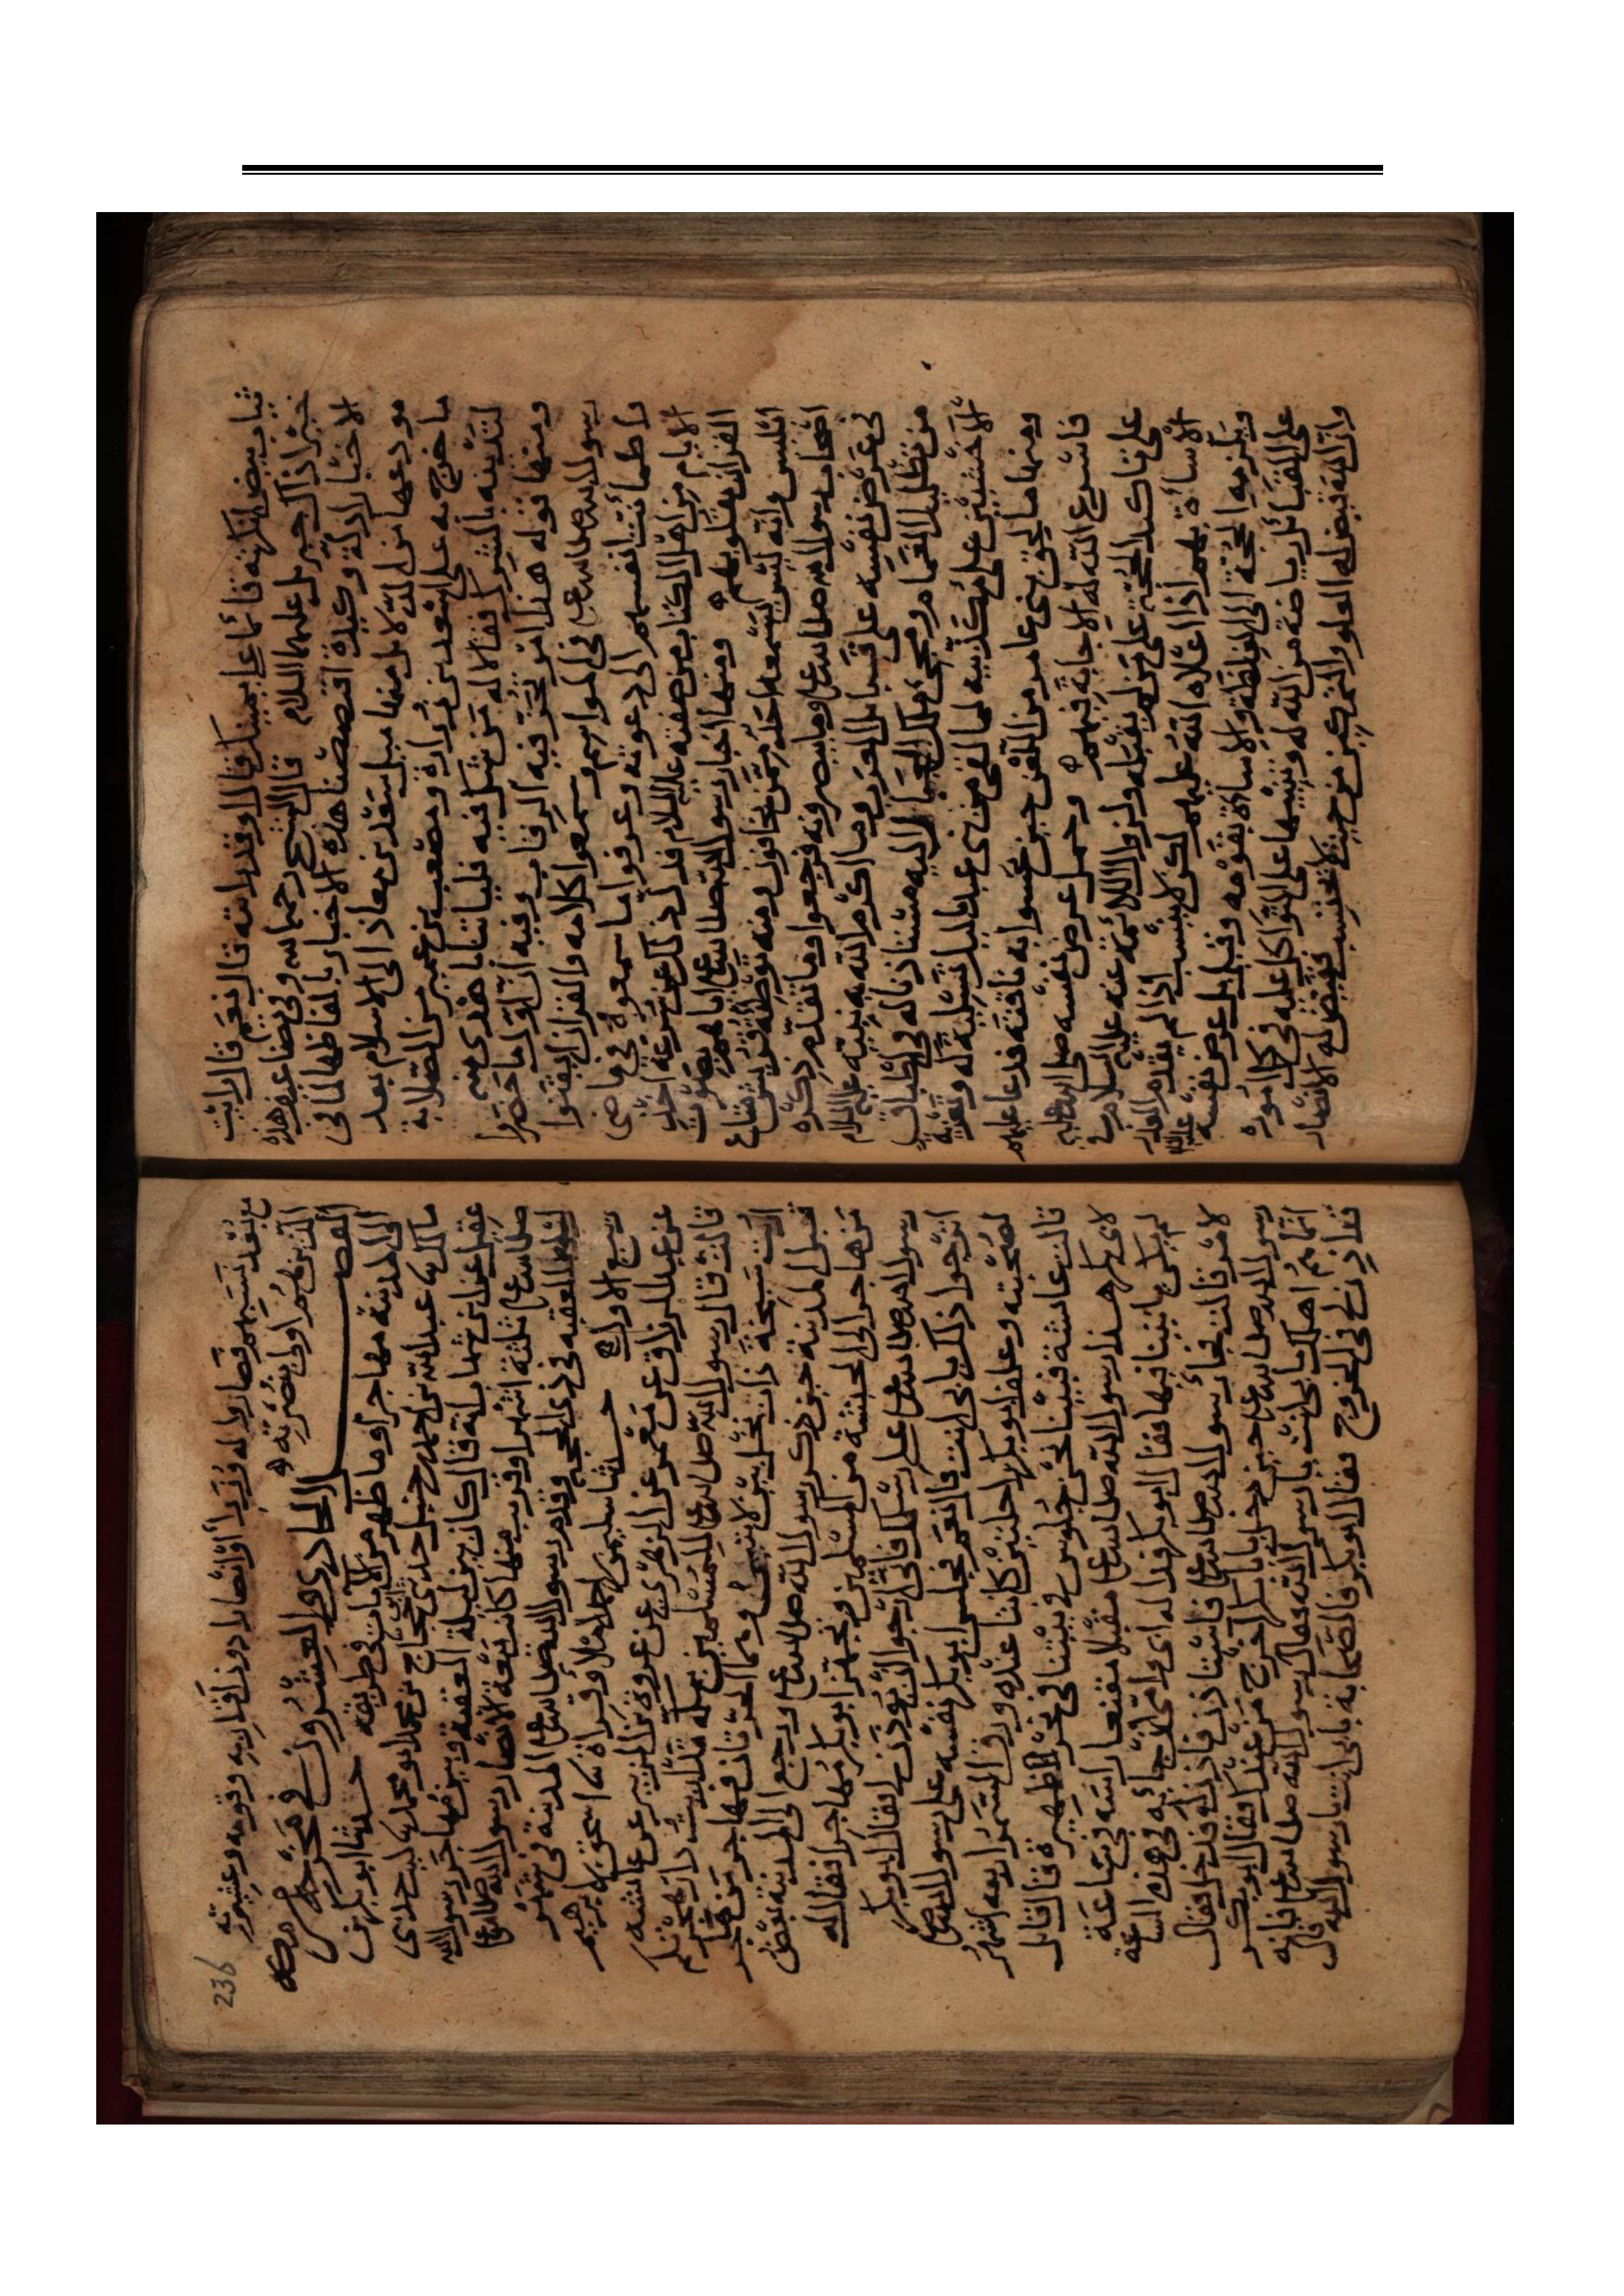 ثياب بيض الكهنة قائما عن يمينك قال وقد رايته قال نعم قال رايت
خيرا ذاك جبريل عليهما السلام قال الشيخ رحمه الله وفي بعض هذه
الاخبار ادلة وكيدة اقتصصنا هذه الاخبار بالفاظها لما في
مودعها من الدلائل منها ميل سعد بن معاذ الى الاسلام بعد
ما خرج به على اسعد بن زرارة ومصعب بن عمير من الصلابة
لتدينه بالشرك فقالا له من شك فيه فلياتنا باهدى منه
ومنها قوله هذا امر تحز فيه الرقاب وفيه ان اول ما حضروا
رسول الله صلى الله عليه في المواسم وسمعوا كلامه والقران ايقنوا
واطمأنت انفسهم الى دعوته وعرفوا ما سمعوه في ماضي
الايام من اهل الكتاب من صفته عليه السلام
القران بقلوبهم ومنها اخبار رسول الله صلى الله عليه اياهم بصوت
ابليس وانه ليس يسمعه احد ممن تخافون ومنه قريش متاع
اصحاب رسول الله صلى الله عليه وما يبصرونه فرجعوا وما تقدم ذكره
في عرض نفسه على قبايل العرب وما اكرم الله به نبيه عليه السلام
من تظليل الغمام ومجئ ملك الجبال اليه مستاذنا له في اطباق
الاخشبين على مكذبيه لما لقي من بني عبد ياليل تسلية له وتعزية
ومنها ما لحق بني عامر من اللعن حين نخسوا به ناقته فدعا عليهم
فاسرع الله له الاجابة فيهم وحمل عرض نفسه صلى الله عليه
على تاكد الحجة على من لم يقبله ولزوال اللائمة عنه عليه السلام
الاسأة بهم اذا اعلاه الله عليهم لا ينسب اذا لم يقدم العذر
ويلزمه الحجة الى الغلظة والاساة بقومه وقيل بل عرض نفسه
على القبائل رياضة من الله له وتنبيها على التوكل عليه في كل اموره
وان الله تقيض له العلو والتمكين من حيث لا يحتسب فقيض له الانصار
236
مع بعد نسبهم فصاروا له وزرا وانصارا دون اقاربه وقومه وعشيرته
الذين هم اولى بنصرته
الفصل الحادي والعشرون في مخرجه من مكة
الى المدينة مهاجرا وما ظهر من الايات في طريقه حدثنا ابو بكر بن
مالك عبد الله بن احمد بن حنبل حدثني حجاج حدثني
عقيل عن ابن شهاب انه قال كان بين ليلة العقبة وبين مهاجر رسول الله
صلى الله عليه ثلثة اشهر او قريب منها كانت بيعة الانصار رسول الله صلى الله عليه
ليلة العقبه في ذي الحجه وقدم رسول الله صلى الله عليه المدينة في شهر
ربيع الاول حدثنا سليمن بن احمد املا وقراة ثنا اسحق بن ابرهيم
عن عبد الرزاق عن معمر عن الزهري عن عروة بن الزبير عن عائشه
قالت قال رسول الله صلى الله عليه للمسلمين بمكه قد اريت دار هجرتكم
اريت سبخة ذات نخل بين لابتين وهما الحرتان فهاجر من هاجر
قبل المدينة حين ذكر رسول الله صلى الله عليه ورجع الى المدينة بعض
من هاجر الى الحبشة من المسلمين وتجهز ابو بكر مهاجرا فقال له
رسول الله صلى الله عليه على رسلك فاني ارجوا ان يوذن لي فقال ابو بكر
اترجوا ذلك بابي انت قال نعم فحبس ابو بكر نفسه على رسول الله صلى
لصحبته وعلف ابو بكر راحلتين كانتا عنده ورق السمر اربعه اشهر
قالت عائشة فبينا نحن جلوس في بيتنا في نحر الظهيرة قال قائل
لابي بكر هذا رسول الله صلى الله عليه مقبلا مقنعا راسه في ساعة
لم يكن ياتينا فيها فقال ابو بكر فدا له ابي وامي لاجابه في هذه الساعة
لامر قالت فجا رسول الله صلى الله عليه فاستاذن فاذن له فدخل فقال
رسول الله صلى الله عليه حين دخل يابا بكر اخرج من عندك فقال ابو بكر
انما هم اهلك بابي انت يارسول الله فقال رسول الله صلى الله عليه فانه
قد اذن لي في الخروج فقال ابو بكر فالصحابة بابي انت يارسول الله قال